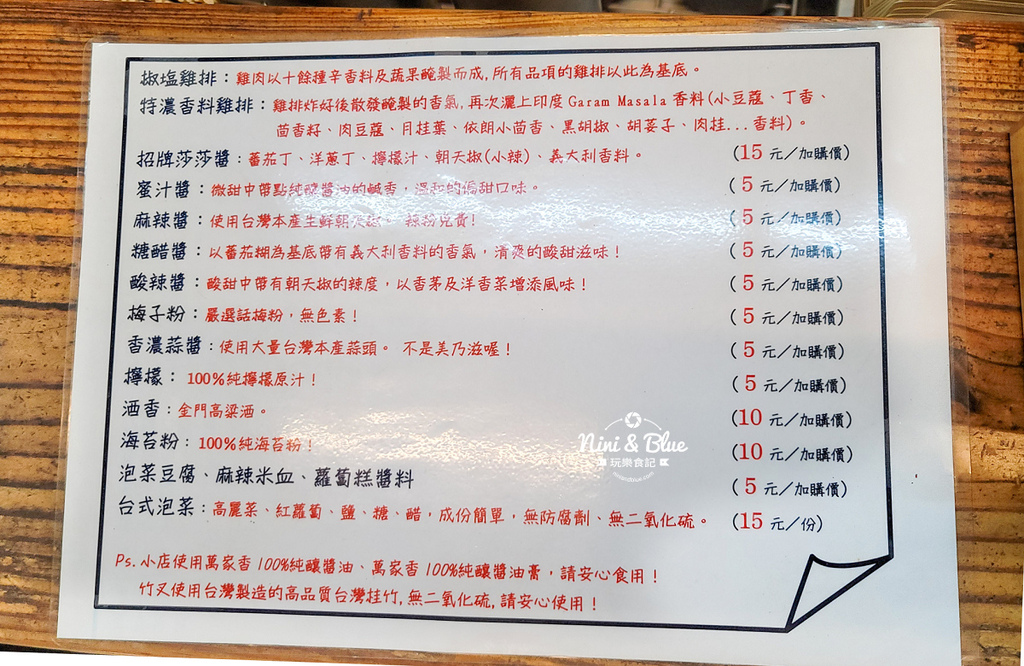 椒塩雞排：雞肉以十餘種辛香料及蔬果醃製而成,所有品項的雞排以此為基底。
特濃香料雞排：雞排炸好後散發醃製的香氣,再次灑上印度Garam Masala香料(小豆蔻、丁香、
茴香籽、肉豆蔻、月桂葉、依朗小茴香、黑胡椒、胡荽子、肉桂...香料)。
招牌莎莎醬：蕃茄丁、洋蔥丁、檸檬汁、朝天椒(小辣)、義大利香料。 (15 元／加購價)
蜜汁醬：微甜中帶點純釀醬油的鹹香，溫和的偏甜口味。 (5 元／加購價)
麻辣醬：使用台灣本產生鮮朝天椒。 辣粉免費! (5 元／加購價)
糖醋醬：以蕃茄糊為基底帶有義大利香料的香氣，清爽的酸甜滋味！ (5 元／加購價)
酸辣醬：酸甜中帶有朝天椒的辣度，以香茅及洋香菜增添風味！ (5 元／加購價)
梅子粉：嚴選話梅粉，無色素！ (5 元／加購價)
香濃蒜醬：使用大量台灣本產蒜頭。 不是美乃滋喔！ (5 元／加購價)
檸檬： 100%純檸檬原汁！ (5 元／加購價)
酒香：金門高粱酒。 (10 元／加購價)
海苔粉：100%純海苔粉！ (10 元／加購價)
泡菜豆腐、麻辣米血、蘿蔔糕醬料 (5 元／加購價)
台式泡菜：高麗菜、紅蘿蔔、鹽、糖、醋，成份簡單，無防腐劑、無二氧化硫。 (15 元／份)
Ps.小店使用萬家香100%純釀醬油、萬家香100%純釀醬油膏，請安心食用！
竹叉使用台灣製造的高品質台灣桂竹,無二氧化硫,請安心使用！
Nini & Blue
玩樂食記